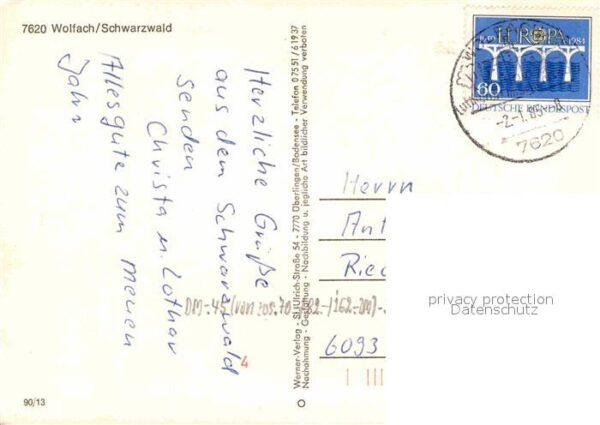 7620 Wolfach/Schwarzwald
Herzliche Grüße
aus dem Schwarzwald
senden
Christa u. Lothar
Alles gute zum neuen
Jahr
90/13
Werner-Verlag - St.-Ulrich-Straße 54 - 7770 Überlingen/Bodensee - Telefon 07551/61937
Nachahmung - Gestaltung - Nachbildung u. jegliche Art bildlicher Verwendung verboten
EUROPA
1984
60
DEUTSCHE BUNDESPOST
-2.-1.85-
7620
Herrn
Ant
Ried
6093
4
privacy protection
Datenschutz